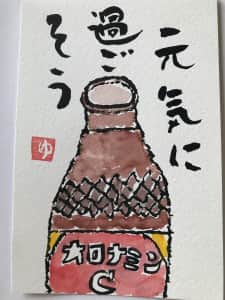 元気に
過ご
そう
ゆ
オロナミン
C